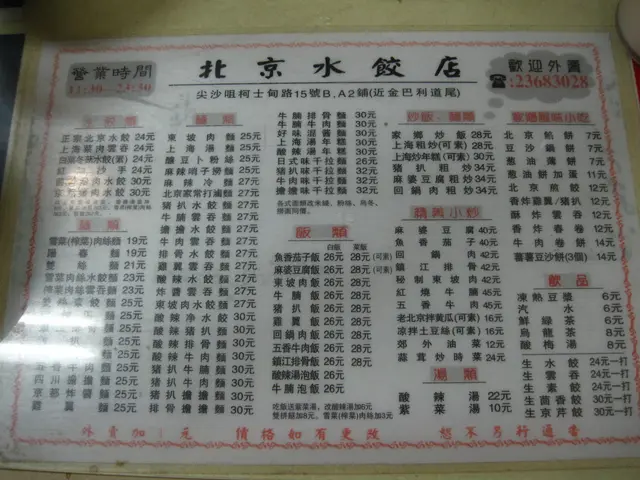 營業時間
11:30 - 23:30
北京水餃店
歡迎外賣
☎:23683028
尖沙咀柯士甸路15號B,A2鋪(近金巴利道尾)
正宗北京水餃 24元
上海菜肉雲吞 24元
麵類
雪菜(榨菜)肉絲麵 19元
陽春麵 19元
雪菜肉絲水餃麵 23元
榨菜肉絲雲吞麵 23元
麵類
東坡肉麵 25元
上海湯麵 25元
釀豆卜粉絲 25元
麻辣哨子撈麵 25元
麻辣冷麵 27元
北京家常打滷麵 27元
豬扒水餃麵 27元
牛腩雲吞麵 27元
牛腩水餃麵 27元
牛肉雲吞麵 27元
雞翼雲吞麵 27元
酸辣水餃麵 27元
酸辣雲吞麵 27元
東坡肉水餃麵 27元
酸辣凈水餃 30元
酸辣豬扒麵 30元
酸辣排骨麵 30元
酸辣牛肉麵 30元
豬扒牛腩麵 30元
豬扒牛肉麵 30元
豬扒擔擔麵 30元
排骨擔擔麵 30元
牛腩排骨麵 30元
牛腩牛肉麵 30元
好味混醬麵 30元
上海湯年糕 30元
酸辣湯年糕 30元
日式味千拉麵 26元
牛肉味千拉麵 32元
豬扒味千拉麵 32元
牛腩味千拉麵 32元
擔擔味千拉麵 32元
飯類
白飯 菜飯
魚香茄子飯 26元 28元(可素)
麻婆豆腐飯 26元 28元(可素)
東坡肉飯 26元 28元
牛腩飯 26元 28元
豬扒飯 26元 28元
雞翼飯 26元 28元
回鍋肉飯 26元 28元
五香牛肉飯 26元 28元
鎮江排骨飯 26元 28元
酸辣湯泡飯 26元
牛腩泡飯 26元
吃飯送羅菜湯,改酸辣湯加6元
雙拼餸加8元。雪菜(榨菜)肉絲加3元
炒飯、麵類
家鄉炒飯 28元
上海粗炒(可素) 28元
上海炒年糕(可素) 30元
豬扒粗炒 34元
麻婆豆腐粗炒 34元
回鍋肉粗炒 34元
精美小炒
麻婆豆腐 40元
魚香茄子 40元
回鍋肉 42元
鎮江排骨 42元
秘制東坡肉 42元
紅燒牛腩 45元
五香牛肉 45元
老北京拌黃瓜(可素) 16元
涼拌土豆絲(可素) 16元
郊外油菜 12元
蒜茸炒時菜 24元
湯類
酸辣湯 22元
紫菜湯 10元
家鄉風味小吃
北京煎餅 7元
豆沙鍋餅 7元
蔥油薄餅 7元
蔥油餅加蛋 11元
北京煎餃 12元
香炸雞翼/豬扒 12元
酥炸雲吞 12元
香炸春卷 12元
牛肉卷餅 14元
蕃薯豆沙餅(3個) 14元
飲品
凍熱豆漿 6元
汽水 6元
鮮綠茶 6元
烏龍茶 8元
酸梅湯 8元
生水餃 24元一打
生雲吞 24元一打
生素餃 24元一打
生茴香餃 30元一打
生京芹餃 30元一打
外賣加一元 價格如有更改 恕不另行通告